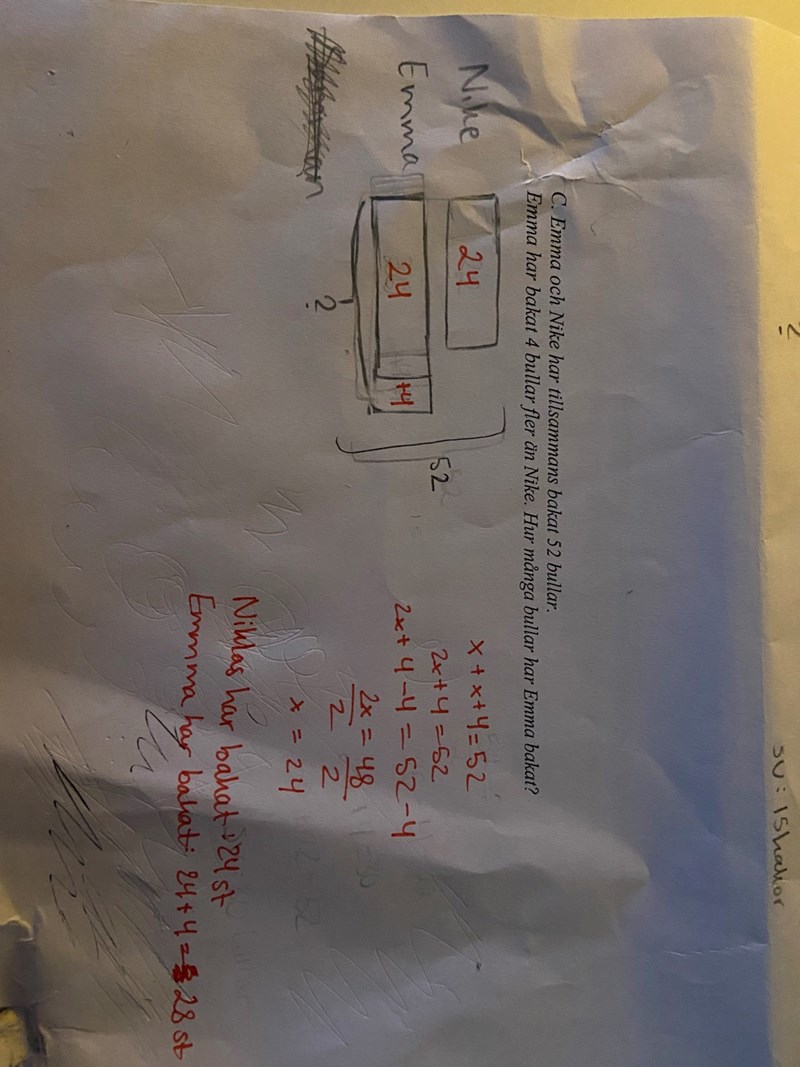 2
SU: ISkakor
C. Emma och Nike har tillsammans bakat 52 bullar.
Emma har bakat 4 bullar fler än Nike. Hur många bullar har Emma bakat?
Nike
24
Emma
24
+4
52
?
x + x + 4 = 52
2x + 4 = 52
2x + 4 - 4 = 52 - 4
2x = 48
2 2
x = 24
Niklas har bakat: 24 st
Emmma har bakat: 24 + 4 = 28 st